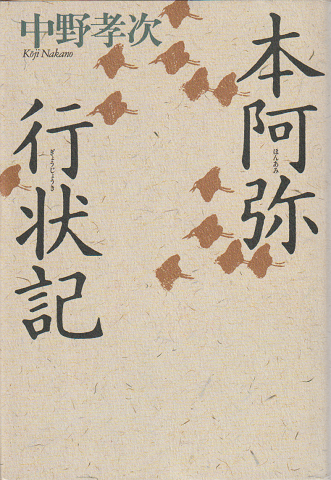 本阿弥
ほんあみ
行状記
ぎょうじょうき
中野孝次
Kōji Nakano